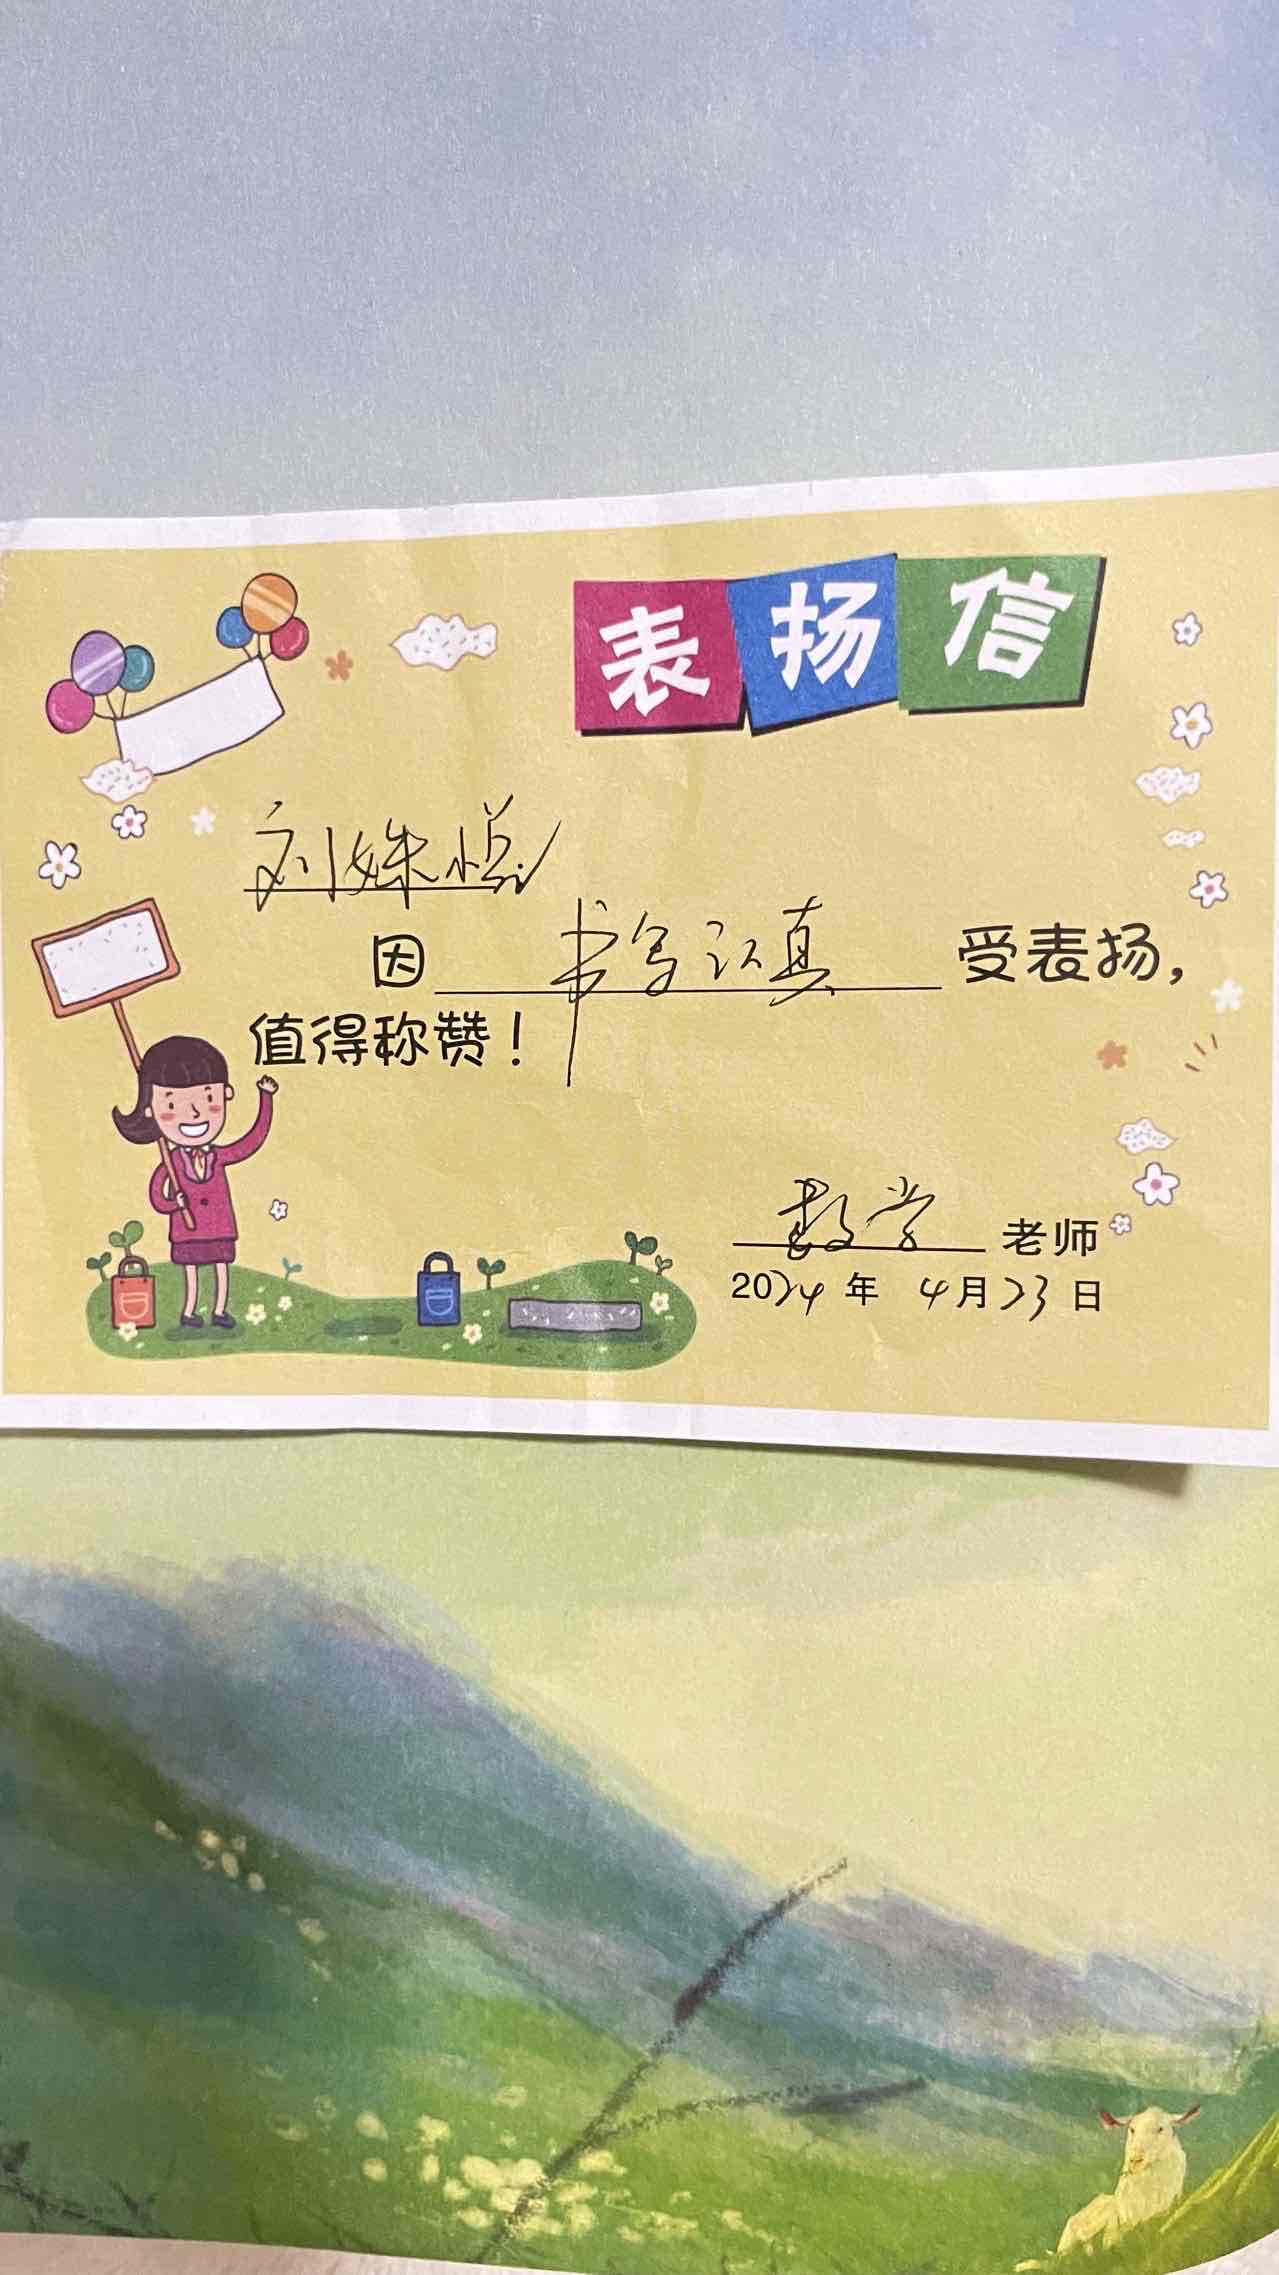 表扬信
刘姝悦
因 书写认真 受表扬，
值得称赞！
数学 老师
2024年 4月23日